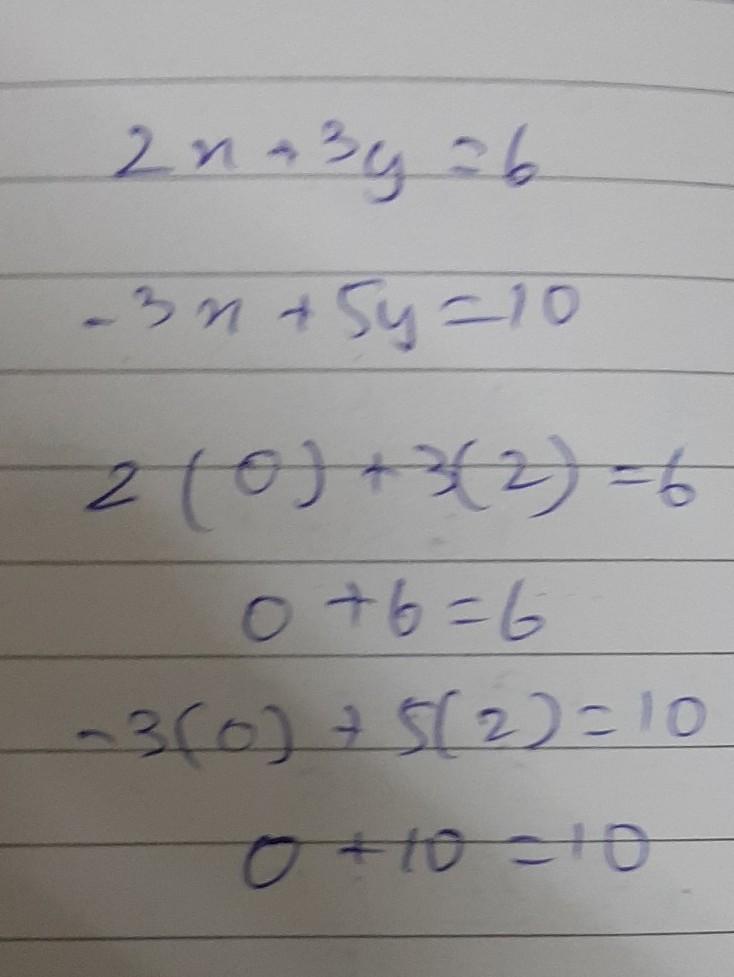 2x + 3y = 6
-3x + 5y = 10
2(0) + 3(2) = 6
0 + 6 = 6
-3(0) + 5(2) = 10
0 + 10 = 10